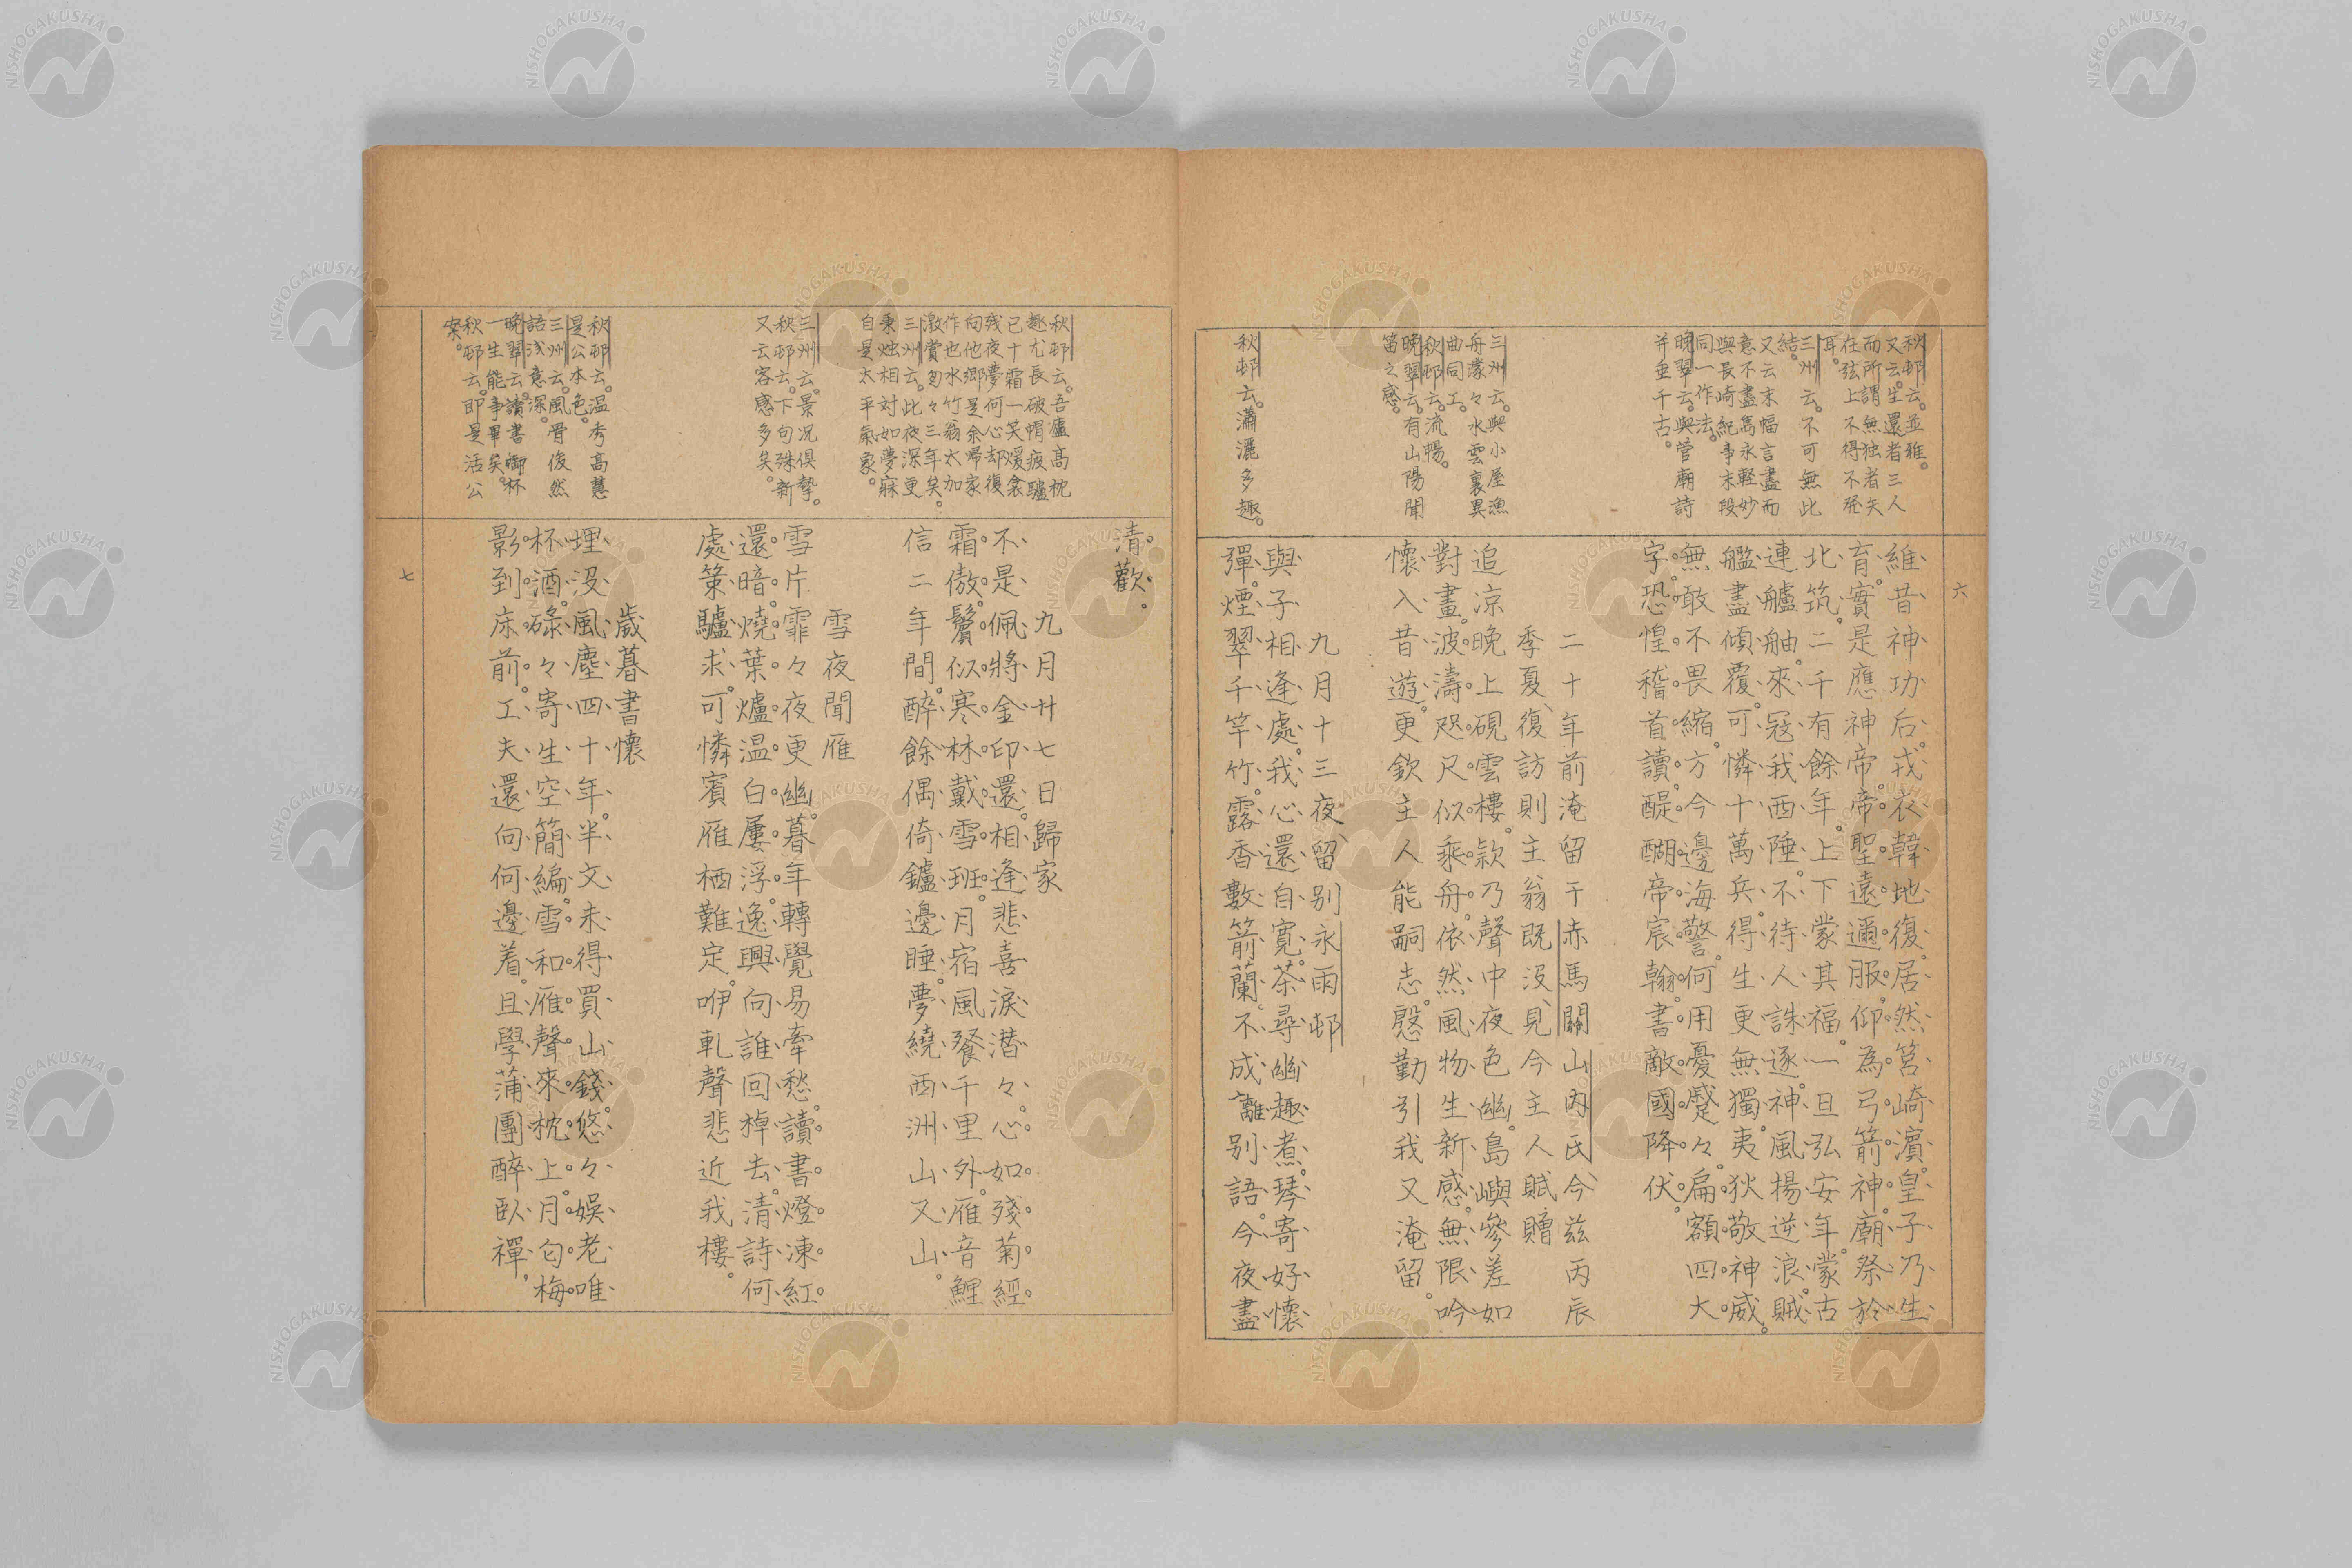 六
秋邨云。並雅。
又云。生還者三人
而所謂無独者夫
在弦上不得不発
耳。
三州云。不可無此
結。
又云末幅言盡而
意不盡雋永軽妙
與長崎紀事末段
同一作法。
晩翠云。與菅廟詩
并垂千古。
維昔神功后戎衣韓地復。居然筥崎濱。皇子乃生
育。實是應神帝。帝聖遠邇服。仰為弓箭神。廟祭於
北筑。二千有餘年。上下蒙其福。一旦弘安年。蒙古
連艫舳來。冦我西陲。不待人誅逐。神風揚逆浪。賊
艦盡傾覆。可憐十萬兵。得生更無獨。夷狄敬神威。
無敢不畏縮。方今邊海警。何用憂蹙々。扁額四大
字。恐惶稽首讀。醍醐帝宸翰。書敵國降伏。
三州云。與小屋漁
舟濛々水雲裏異
曲同工。
秋邨云。流暢。
晩翠云。有山陽聞
笛之感。
二十年前淹留于赤馬關山内氏今茲丙辰
季夏復訪則主翁既没見今主人賦贈
追凉晩上硯雲樓。欵乃聲中夜色幽。島嶼參差如
對畫。波濤咫尺似乘舟。依然風物生新感。無限吟
懷入昔遊。更欽主人能嗣志。慇勤引我又淹留。
秋邨云。瀟灑多趣。
九月十三夜留別永雨邨
與子相逢處。我心還自寛。茶尋幽趣煮。琴寄好懷
彈。煙翠千竿竹。露香數箭蘭。不成離別語。今夜盡
清歡。
秋邨云。吾廬高枕
趣尤長破帽疲驢
已十霜一笑煖衾
残夜夢何心却復
向他郷是余帰家
作也水竹翁太加
激賞匆々三年矣。
三州云。此夜深更
秉燭相對如夢寐
自是太平氣象。
九月廿七日歸家
不是佩將金印還。相逢悲喜淚潜々。心如殘菊經
霜傲。鬢似寒林戴雪班。月宿風餐千里外。雁音鯉
信二年間。醉餘偶倚鑪邊睡。夢繞西洲山又山。
三州云。景况倶摯。
秋邨云。下句殊新
又云客感多矣。
雪夜聞雁
雪片霏々夜更幽。暮年轉覺易牽愁。讀書燈凍紅
還暗。燒葉爐温白屢浮。逸興向誰回棹去。清詩何
處策驢求。可憐賓雁栖難定。咿軋聲悲近我樓。
秋邨云。温秀高慧
是公本色。
三州云。風骨俊然
語浅意深。
晩翠云。讀書啣杯
一生能事畢矣。
秋邨云。即是活公
案。
歳暮書懷
埋没風塵四十年。半文未得買山錢。悠々娯老唯
杯酒。碌々寄生空簡編。雪和雁聲來枕上。月匂梅
影到床前。工夫還向何邊着。且學蒲團醉臥禪。
七